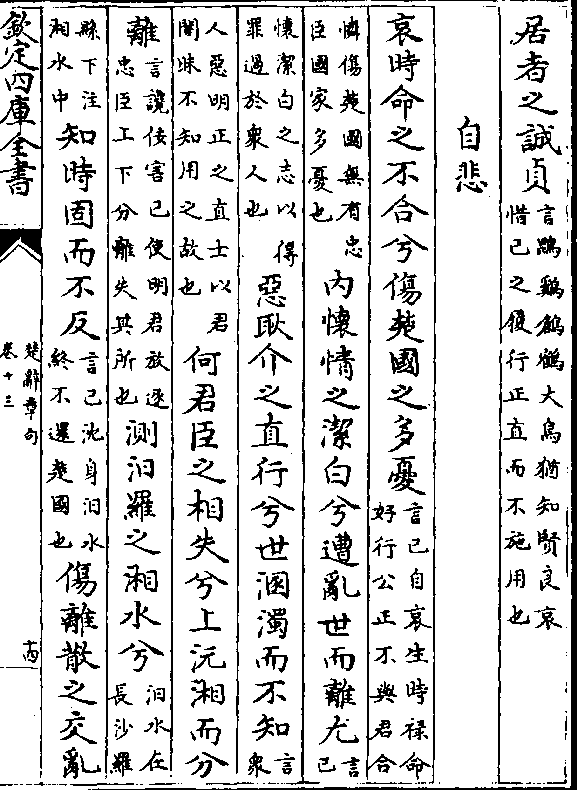 居者之誠貞
言鵾鷄鶬鶴大鳥猶知賢良哀
惜己之履行正直而不施用也
自悲
哀時命之不合兮傷楚國之多憂
言己自哀生時祿命
好行公正不與君合
憐傷楚國無有忠
臣國家多憂也
內懷情之潔白兮遭亂世而離尤
言
己
懷潔白之志以得
罪過於衆人也
惡耿介之直行兮世溷濁而不知
言
衆
人惡明正之直士以君
闇昧不知用之故也
何君臣之相失兮上沅湘而分
離
言讒佞害己使明君放逐
忠臣上下分離失其所也
測汨羅之湘水兮
汨水在
長沙羅
縣下注
湘水中
知時固而不反
言己沈身汨水
終不還楚國也
傷離散之交亂
欽定四庫全書
楚辭章句
卷十三
十四